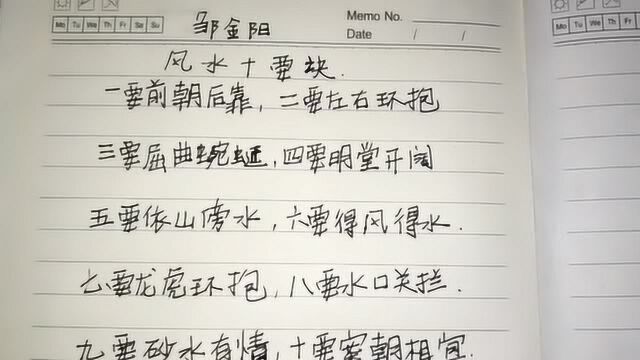 邹金阳
Memo No.
Mo Tu We Th Fr Sa Su
Date / /
风水十要块.
一要前朝后靠，二要左右环抱
三要屈曲蜿蜒，四要明堂开阔
五要依山傍水，六要得风得水.
七要龙虎环抱，八要水口关拦.
九要砂水有情，十要案朝相宜.